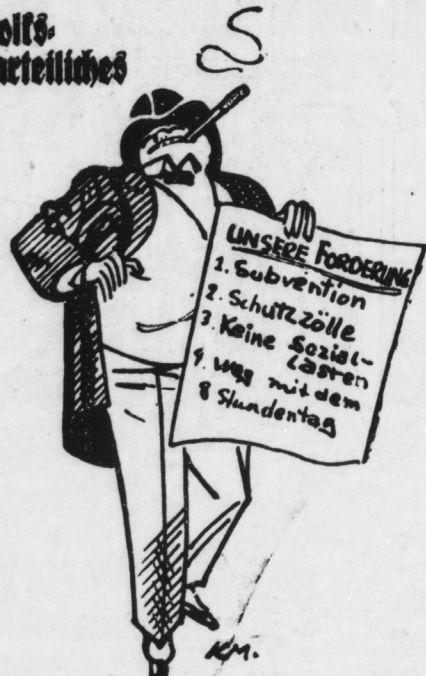 olks-
arteiliches
UNSERE FORDERUNG
1. Subvention
2. Schutzzölle
3. Keine Sozial-
Lasten
4. weg mit dem
8 Stundentag
KM.